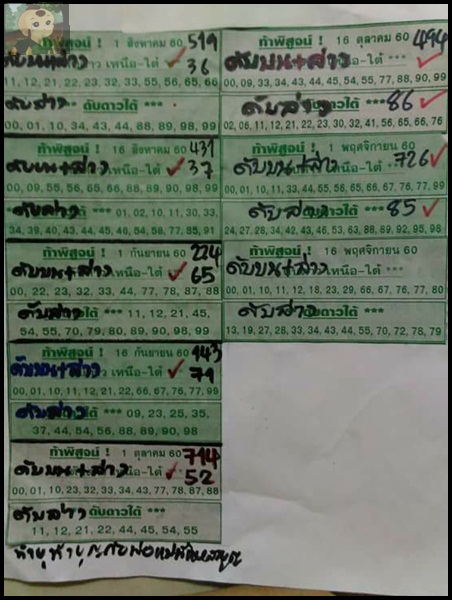 ท้าพิสูจน์ ! 1 สิงหาคม 60 519
ดับบน+ล่าง เหนือ-ใต้ ✓ 36
11, 12, 21, 22, 23, 32, 33, 55, 56, 65, 66
ดับล่าง ดับดาวใต้ ***
00, 01, 10, 34, 43, 44, 88, 89, 98, 99
ท้าพิสูจน์ ! 16 สิงหาคม 60 431
ดับบน+ล่าง เหนือ-ใต้ ✓ 37
00, 09, 55, 56, 65, 66, 88, 89, 90, 98, 99
ดับล่าง ใต้ *** 01, 02, 10, 11, 30, 33,
34, 39, 40, 43, 44, 45, 46, 54, 58, 77, 85, 91
ท้าพิสูจน์ ! 1 กันยายน 60 224
ดับบน+ล่าง เหนือ-ใต้ ✓ 65
00, 22, 23, 32, 33, 44, 77, 78, 87, 88
ดับล่าง *** 11, 12, 21, 45,
54, 55, 70, 79, 80, 89, 90, 98, 99
ท้าพิสูจน์ ! 16 กันยายน 60 143
ดับบน+ล่าง เหนือ-ใต้ ✓ 79
00, 01, 10, 11, 12, 21, 22, 66, 67, 76, 77, 99
ดับล่าง ใต้ *** 09, 23, 25, 35,
37, 44, 54, 56, 88, 89, 90, 98
ท้าพิสูจน์ ! 1 ตุลาคม 60 714
ดับบน+ล่าง เหนือ-ใต้ ✓ 52
00, 01, 10, 23, 32, 33, 34, 43, 77, 78, 87, 88
ดับล่าง ดับดาวใต้ ***
11, 12, 21, 22, 44, 45, 54, 55
ท้าพิสูจน์ ! 16 ตุลาคม 60 494
ดับบน+ล่าง เหนือ-ใต้ ✓
00, 09, 33, 34, 43, 44, 45, 54, 55, 77, 88, 90, 99
ดับล่าง ดับดาวใต้ *** 86 ✓
02, 06, 11, 12, 21, 22, 23, 30, 32, 41, 56, 65, 66, 76
ท้าพิสูจน์ ! 1 พฤศจิกายน 60
ดับบน+ล่าง เหนือ-ใต้ 726 ✓
00, 01, 10, 11, 33, 44, 55, 56, 65, 66, 67, 76, 77, 99
ดับล่าง ดับดาวใต้ *** 85 ✓
24, 27, 28, 34, 42, 43, 46, 53, 63, 88, 89, 92, 95, 98
ท้าพิสูจน์ ! 16 พฤศจิกายน 60
ดับบน+ล่าง เหนือ-ใต้ ***
00, 01, 10, 11, 12, 18, 23, 29, 66, 67, 76, 77, 80
ดับล่าง ดับดาวใต้ ***
13, 19, 27, 28, 33, 34, 43, 44, 55, 70, 72, 78, 79